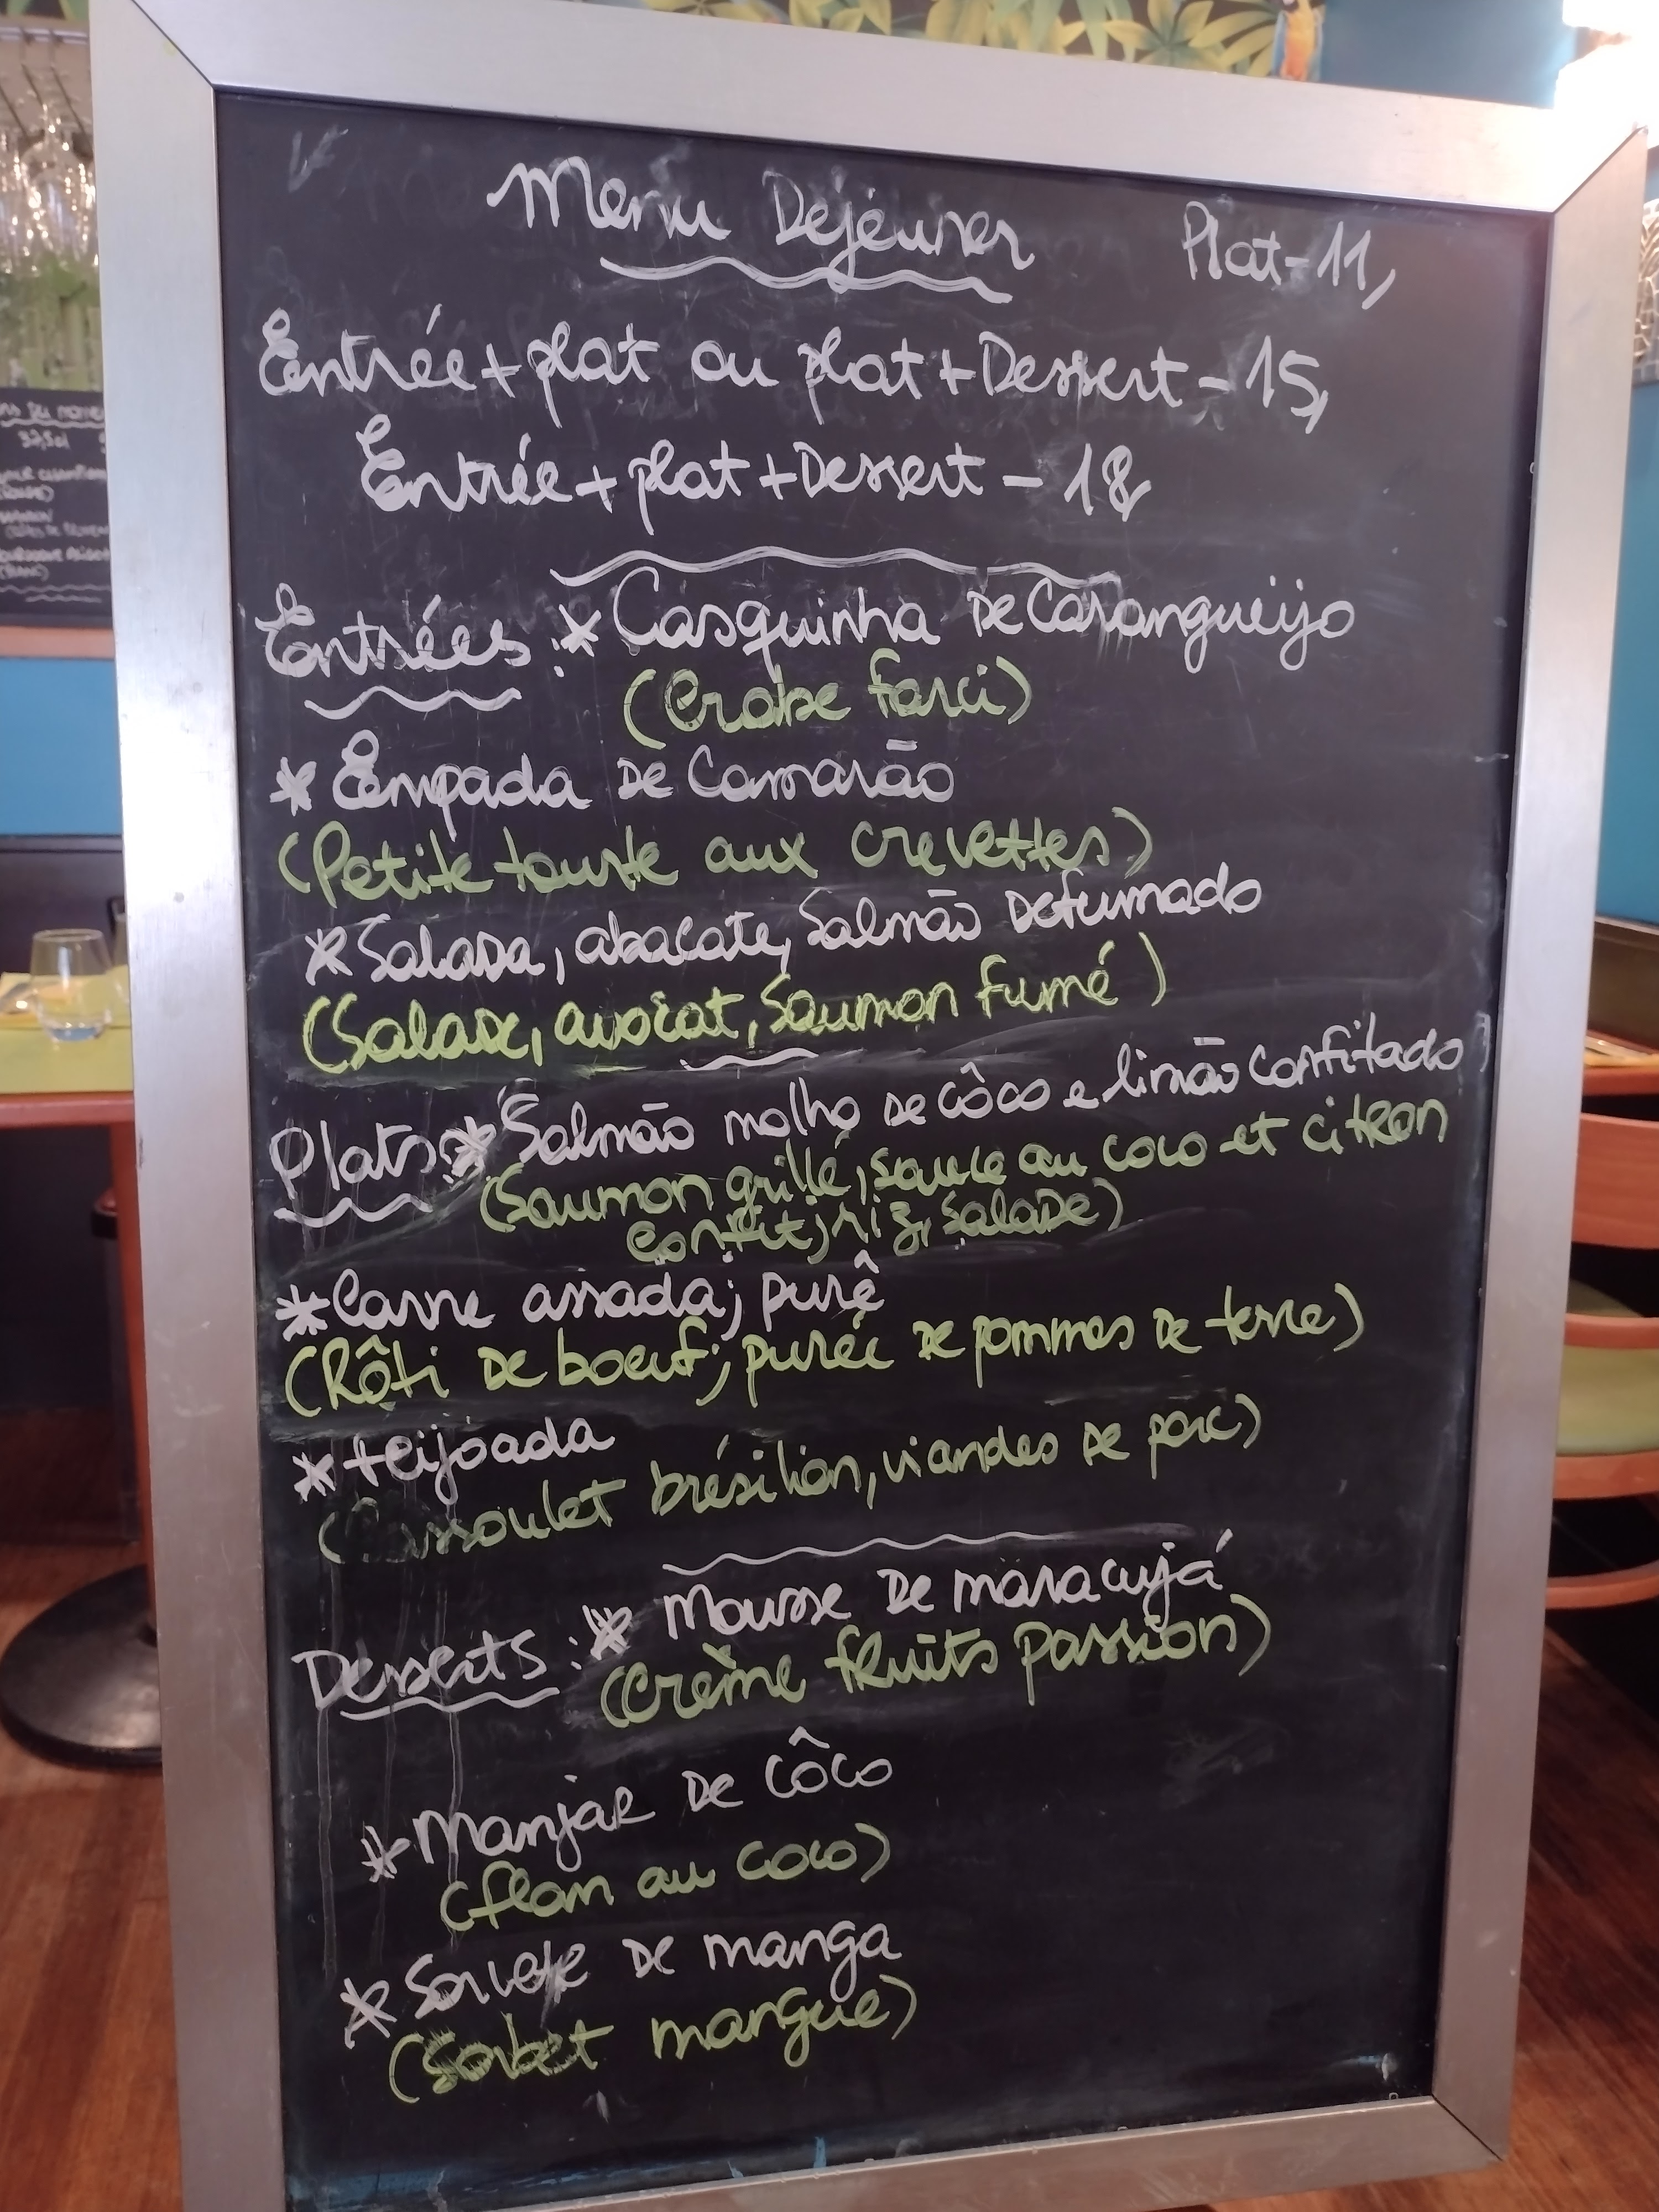 Menu Déjeuner
Plat-11,
Entrée+plat ou plat+Dessert-15,
Entrée+plat+Dessert-18,
Entrées:*Casquinha De Carangueijo
(Crabe farci)
*Empada de Camarão
(Petite tourte aux crevettes)
*Salada, abacate, Salmão Defumado
(Salade, avocat, Saumon fumé)
Plats:*Salmão molho de côco e limão confitado
(Saumon grillé, sauce au coco et citron
confit; riz, salade)
*Carne assada; purê
(Rôti de boeuf; purée de pommes de terre)
*feijoada
(Cassoulet brésilien, viandes de porc)
Desserts:*Mousse de maracujá
(Crème fruits passion)
*Manjar de côco
(flan au coco)
*Sorvete de manga
(Sorbet mangue)
37,5cl